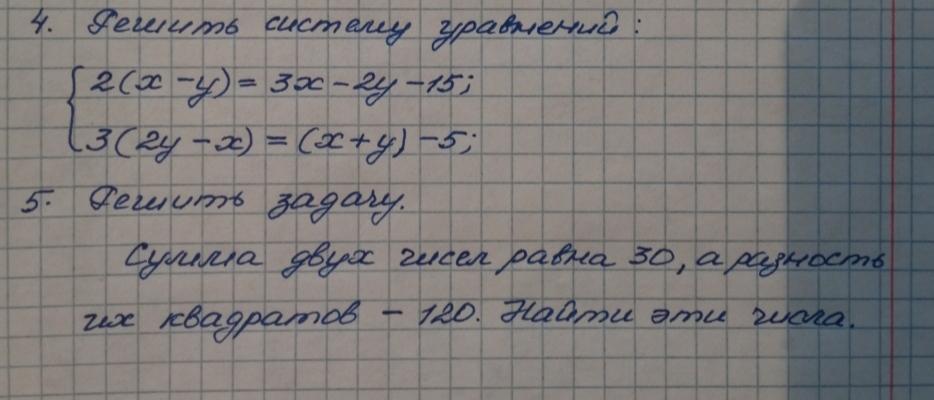 4. Решить систему уравнений:
2(x-y)= 3x-2y-15;
3(2y-x)=(x+y)-5;
5. Решить задачу.
Сумма двух чисел равна 30, а разность
их квадратов - 120. Найти эти числа.